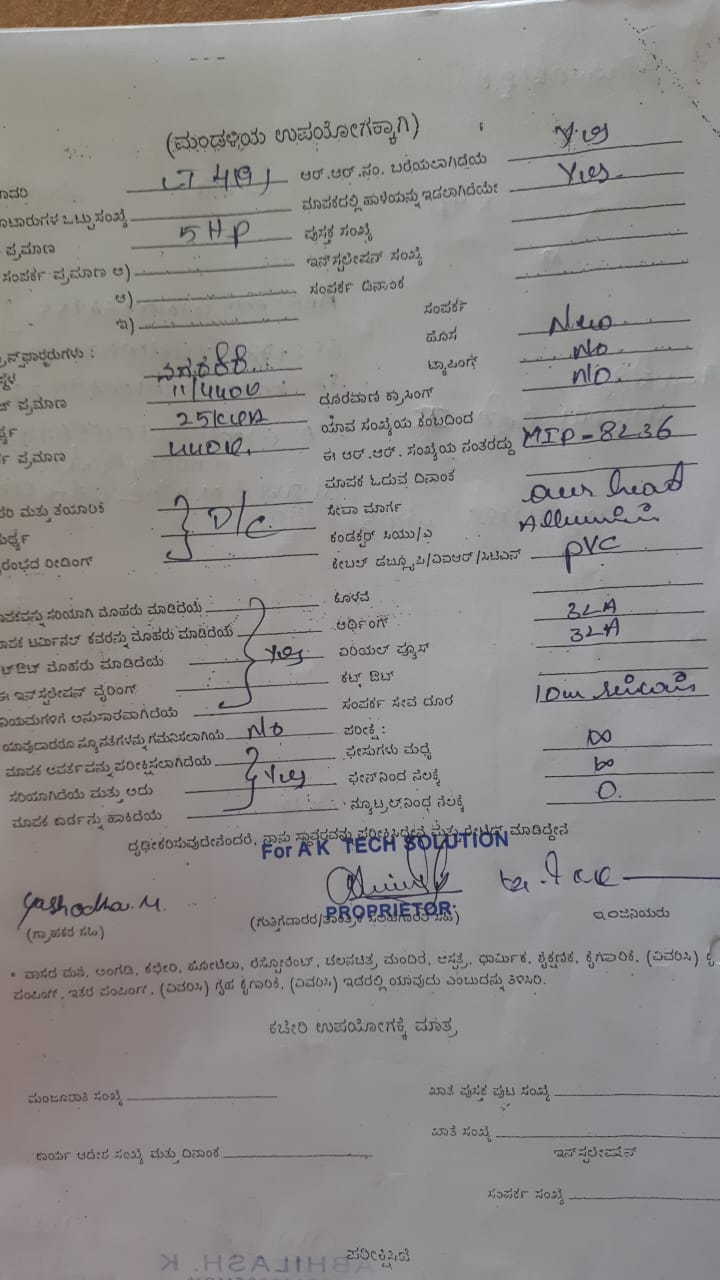 (ಮಂಡಳಿಯ ಉಪಯೋಗಕ್ಕಾಗಿ)
LT 4(a)
ಆರ್.ಆರ್.ನಂ. ಬರೆಯಲಾಗಿದೆಯೆ Yes
ಮಾಪಕದಲ್ಲಿ ಹಾಳೆಯನ್ನು ಇಡಲಾಗಿದೆಯೇ Yes.
ಒಟ್ಟು ಸಂಖ್ಯೆ
ಪ್ರಮಾಣ 5 HP ಪುಸ್ತಕ ಸಂಖ್ಯೆ
ಸಂಪರ್ಕ ಪ್ರಮಾಣ ಅ) ಇನ್‌ಸ್ಟಲೇಷನ್ ಸಂಖ್ಯೆ
ಆ) ಸಂಪರ್ಕ ದಿನಾಂಕ
ಇ) ಸಂಪರ್ಕ
ಹೊಸ New
ಟ್ಯಾಪಿಂಗ್ No
ದೂರವಾಣಿ ಕ್ರಾಸಿಂಗ್ No.
ಪ್ರಮಾಣ 11/440V
25KVA ಯಾವ ಸಂಖ್ಯೆಯ ಕಂಬದಿಂದ
ಪ್ರಮಾಣ 440V. ಈ ಆರ್.ಆರ್. ಸಂಖ್ಯೆಯ ನಂತರದ್ದು MIP-8236
ಮಾಪಕ ಓದುವ ದಿನಾಂಕ
ಮತ್ತು ತಯಾರಿಕೆ D/C ಸೇವಾ ಮಾರ್ಗ over head
ಕಂಡಕ್ಟರ್ ಸಿಯು/ಎ
ರೀಡಿಂಗ್ PVC
ಸರಿಯಾಗಿ ಮೊಹರು ಮಾಡಿದೆಯೆ
ಟರ್ಮಿನಲ್ ಕವರನ್ನು ಮೊಹರು ಮಾಡಿದೆಯೆ ಅರ್ಥಿಂಗ್ 32A
ಮೊಹರು ಮಾಡಿದೆಯೆ Yes ಏರಿಯಲ್ ಫ್ಯೂಸ್ 32A
ಈ ಇನ್‌ಸ್ಟಲೇಷನ್ ವೈರಿಂಗ್ ಕಟ್ ಔಟ್
ನಿಯಮಗಳಿಗೆ ಅನುಸಾರವಾಗಿದೆಯೆ ಸಂಪರ್ಕ ಸೇವ ದೂರ 10m
ಯಾವುದಾದರೂ ನ್ಯೂನತೆಗಳನ್ನು ಗಮನಿಸಲಾಗಿಯೆ No ಪರೀಕ್ಷೆ:
ಮಾಪಕ ಆವರ್ತವನ್ನು ಪರೀಕ್ಷಿಸಲಾಗಿದೆಯೆ ಫೇಸುಗಳು ಮಧ್ಯೆ ∞
ಸರಿಯಾಗಿದೆಯೆ ಮತ್ತು ಅದು Yes ಫೇಸ್‌ನಿಂದ ನೆಲಕ್ಕೆ ∞
ಮಾಪಕ ಕಾರ್ಡನ್ನು ಹಾಕಿದೆಯೆ ನ್ಯೂಟ್ರಲ್‌ನಿಂದ ನೆಲಕ್ಕೆ 0.
ದೃಢೀಕರಿಸುವುದೇನೆಂದರೆ, ನಾನು ಸ್ಥಾವರವನ್ನು ಪರೀಕ್ಷಿಸಿದ್ದೇನೆ ಮತ್ತು ಮಾಡಿದ್ದೇನೆ
For A K TECH SOLUTION
Yashodha.M.
PROPRIETOR
(ಗ್ರಾಹಕರ ಸಹಿ) (ಗುತ್ತಿಗೆದಾರರ/ ಇಂಜಿನಿಯರು
* ವಾಸದ ಮನೆ, ಅಂಗಡಿ, ಕಛೇರಿ, ಹೋಟೆಲು, ರೆಸ್ಟೋರೆಂಟ್, ಚಲನಚಿತ್ರ ಮಂದಿರ, ಆಸ್ಪತ್ರೆ, ಧಾರ್ಮಿಕ, ಶೈಕ್ಷಣಿಕ, ಕೈಗಾರಿಕೆ, (ವಿವರಿಸಿ)
ಪಂಪಿಂಗ್, ಇತರ ಪಂಪಿಂಗ್, (ವಿವರಿಸಿ) ಗೃಹ ಕೈಗಾರಿಕೆ, (ವಿವರಿಸಿ) ಇದರಲ್ಲಿ ಯಾವುದು ಎಂಬುದನ್ನು ತಿಳಿಸಿರಿ.
ಕಚೇರಿ ಉಪಯೋಗಕ್ಕೆ ಮಾತ್ರ
ಮಂಜೂರಾತಿ ಸಂಖ್ಯೆ ಖಾತೆ ಪುಸ್ತಕ ಪುಟ ಸಂಖ್ಯೆ
ಖಾತೆ ಸಂಖ್ಯೆ
ಕಾರ್ಯ ಆದೇಶ ಸಂಖ್ಯೆ ಮತ್ತು ದಿನಾಂಕ ಇನ್‌ಸ್ಟಲೇಷನ್
ಸಂಪರ್ಕ ಸಂಖ್ಯೆ
ಪರೀಕ್ಷಿಸಿದೆ
ABHILASH. K